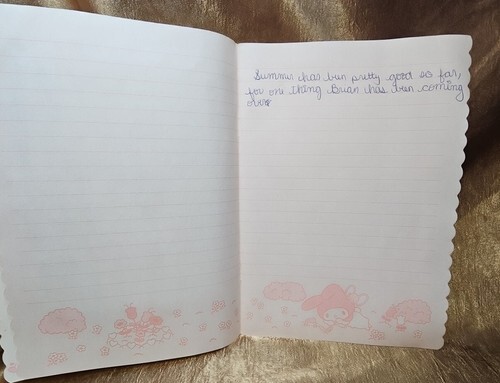 Summer has been pretty good so far,
for one thing Brian has been coming
over